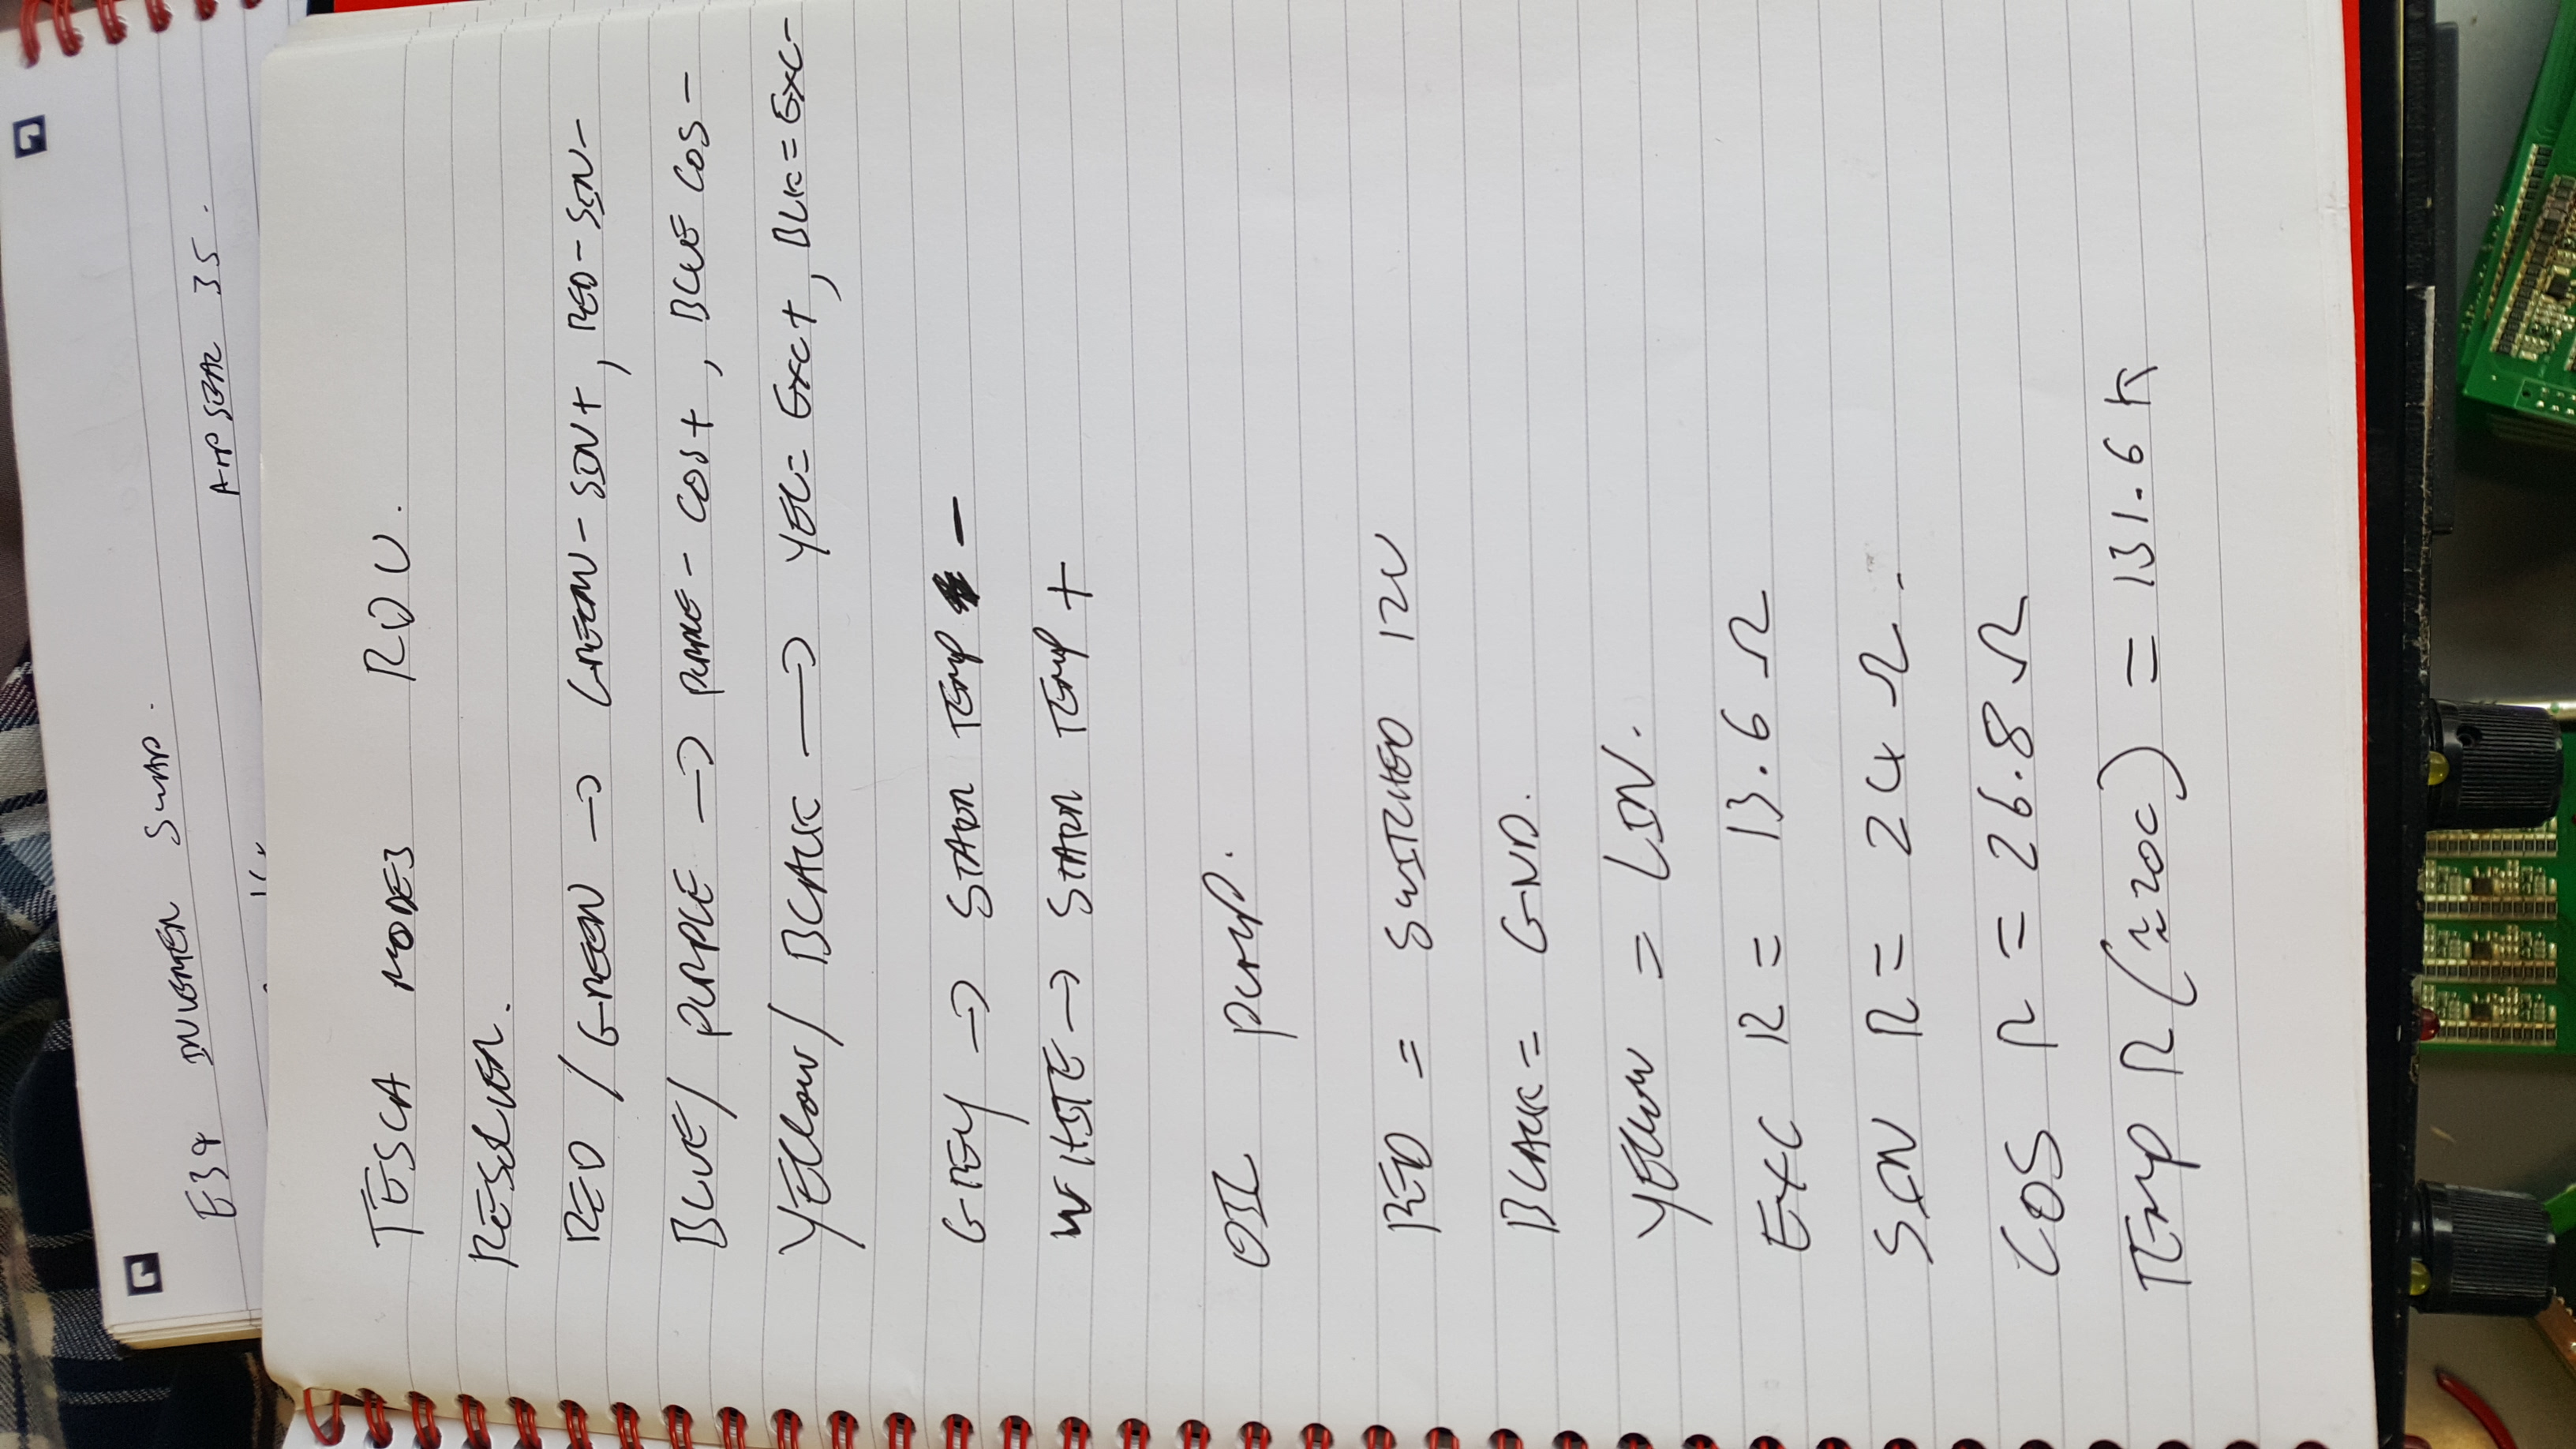 E39 INVERTER SWAP.
AMPSEAL 35.
TESLA MODE3 RDU.
RESOLVER.
RED / GREEN → GREEN - SIN+, RED - SIN-
BLUE / PURPLE → PURPLE - COS+, BLUE COS -
YELLOW / BLACK → YEL = EXC+, BLK = EXC-
GREY → STATOR TEMP -
WHITE → STATOR TEMP +
OIL PUMP.
RED = SWITCHED 12V
BLACK = GND.
YELLOW = LIN.
EXC R = 13.6 Ω
SIN R = 24 Ω.
COS R = 26.8 Ω
TEMP R (≈20C) = 131.6 K